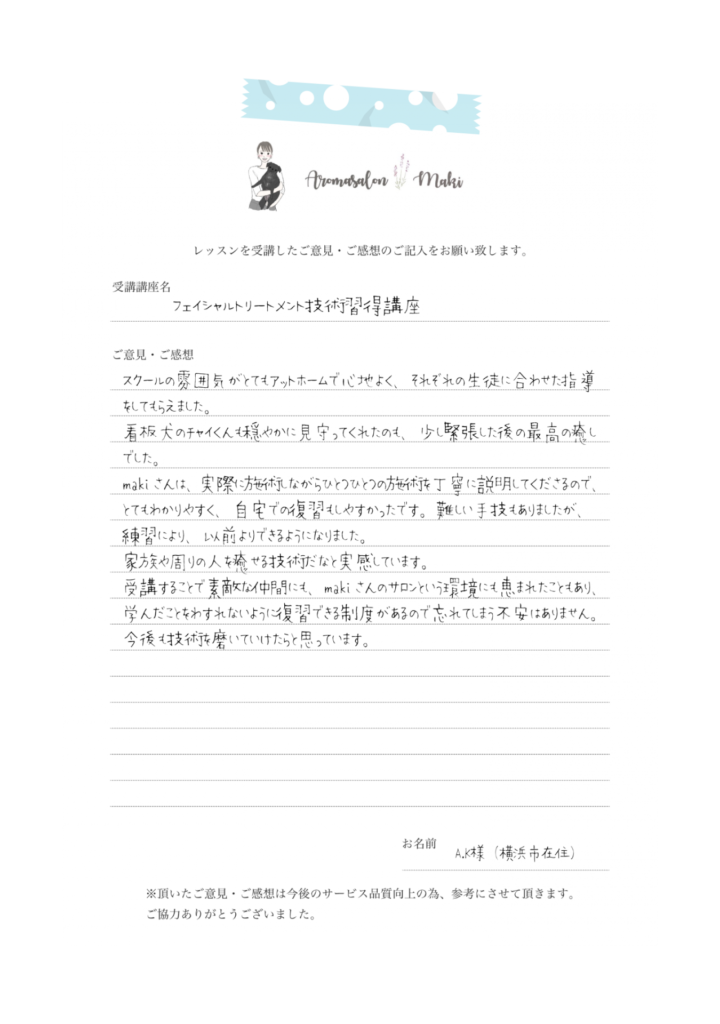 Aromasalon Maki
レッスンを受講したご意見・ご感想のご記入をお願い致します。
受講講座名
フェイシャルトリートメント技術習得講座
ご意見・ご感想
スクールの雰囲気がとてもアットホームで心地よく、それぞれの生徒に合わせた指導
をしてもらえました。
看板犬のチャイくんも穏やかに見守ってくれたのも、少し緊張した後の最高の癒し
でした。
makiさんは、実際に施術しながらひとつひとつの施術を丁寧に説明してくださるので、
とてもわかりやすく、自宅での復習もしやすかったです。難しい手技もありましたが、
練習により、以前よりできるようになりました。
家族や周りの人を癒せる技術だなと実感しています。
受講することで素敵な仲間にも、makiさんのサロンという環境にも恵まれたこともあり、
学んだことをわすれないように復習できる制度があるので忘れてしまう不安はありません。
今後も技術を磨いていけたらと思っています。
お名前
A.K様（横浜市在住）
※頂いたご意見・ご感想は今後のサービス品質向上の為、参考にさせて頂きます。
ご協力ありがとうございました。